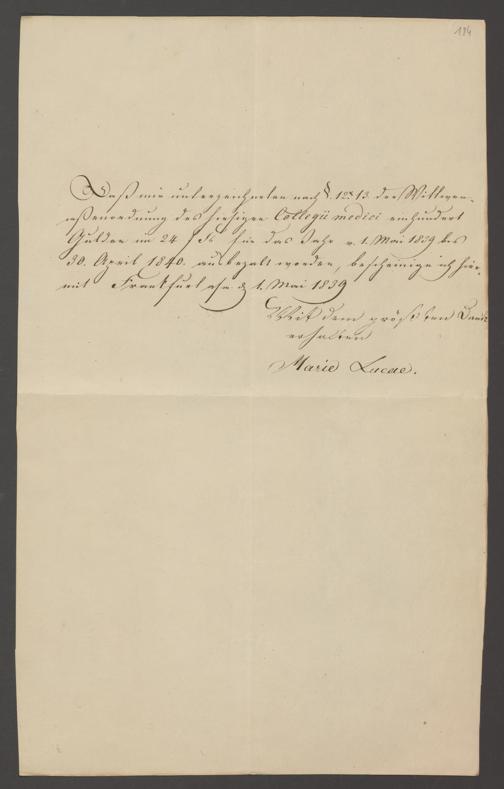 184
Daß mir unterzeichneten nach §. 12 & 13. der Wittwen-
kassenordnung des hiesigen Collegii medici einhundert
Gulden im 24 f Fs für das Jahr v. 1. Mai 1839 bis
30. April 1840. ausbezalt worden, bescheinige ich hier-
mit Frankfurt a/m d. 1. Mai 1839
Mit dem größten Dank
erhalten
Marie Lucae.